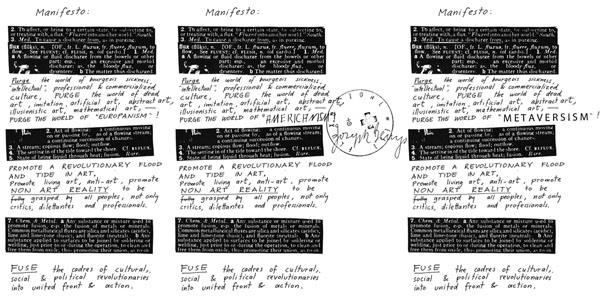 Manifesto:
2. To affect, or bring to a certain state, by subjecting to,
or treating with, a flux. "Fluxed into another world." South.
3. Med. To cause a discharge from, as in purging.
flux (flŭks), n. [OF., fr. L. fluxus, fr. fluere, fluxum, to
flow. See FLUENT; cf. FLUSH, n. (of cards).] 1. Med.
a A flowing or fluid discharge from the bowels or other
part: esp., an excessive and morbid
discharge: as, the bloody flux, or
dysentery. b The matter thus discharged.
Purge the world of bourgeois sickness,
"intellectual", professional & commercialized
culture, PURGE the world of dead
art, imitation, artificial art, abstract art,
illusionistic art, mathematical art, —
PURGE THE WORLD OF "EUROPANISM"!
2. Act of flowing: a continuous moving
on or passing by, as of a flowing stream;
a continuing succession of changes.
3. A stream; copious flow; flood; outflow.
4. The setting in of the tide toward the shore. Cf. REFLUX.
5. State of being liquid through heat; fusion. Rare.
PROMOTE A REVOLUTIONARY FLOOD
AND TIDE IN ART,
Promote living art, anti-art, promote
NON ART REALITY to be
fully grasped by all peoples, not only
critics, dilettantes and professionals.
7. Chem. & Metal. a Any substance or mixture used to
promote fusion, esp. the fusion of metals or minerals.
Common metallurgical fluxes are silica and silicates (acidic),
lime and limestone (basic), and fluorite (neutral). b Any
substance applied to surfaces to be joined by soldering or
welding, just prior to or during the operation, to clean and
free them from oxide, thus promoting their union, as rosin.
FUSE the cadres of cultural,
social & political revolutionaries
into united front & action.
Manifesto:
2. To affect, or bring to a certain state, by subjecting to,
or treating with, a flux. "Fluxed into another world." South.
3. Med. To cause a discharge from, as in purging.
flux (flŭks), n. [OF., fr. L. fluxus, fr. fluere, fluxum, to
flow. See FLUENT; cf. FLUSH, n. (of cards).] 1. Med.
a A flowing or fluid discharge from the bowels or other
part: esp., an excessive and morbid
discharge: as, the bloody flux, or
dysentery. b The matter thus discharged.
Purge the world of bourgeois sickness,
"intellectual", professional & commercialized
culture, PURGE the world of dead
art, imitation, artificial art, abstract art,
illusionistic art, mathematical art, —
PURGE THE WORLD OF "AMERICANISM"
Joseph Beuys
2. Act of flowing: a continuous moving
on or passing by, as of a flowing stream;
a continuing succession of changes.
3. A stream; copious flow; flood; outflow.
4. The setting in of the tide toward the shore. Cf. REFLUX.
5. State of being liquid through heat; fusion. Rare.
PROMOTE A REVOLUTIONARY FLOOD
AND TIDE IN ART,
Promote living art, anti-art, promote
NON ART REALITY to be
fully grasped by all peoples, not only
critics, dilettantes and professionals.
7. Chem. & Metal. a Any substance or mixture used to
promote fusion, esp. the fusion of metals or minerals.
Common metallurgical fluxes are silica and silicates (acidic),
lime and limestone (basic), and fluorite (neutral). b Any
substance applied to surfaces to be joined by soldering or
welding, just prior to or during the operation, to clean and
free them from oxide, thus promoting their union, as rosin.
FUSE the cadres of cultural,
social & political revolutionaries
into united front & action.
Manifesto:
2. To affect, or bring to a certain state, by subjecting to,
or treating with, a flux. "Fluxed into another world." South.
3. Med. To cause a discharge from, as in purging.
flux (flŭks), n. [OF., fr. L. fluxus, fr. fluere, fluxum, to
flow. See FLUENT; cf. FLUSH, n. (of cards).] 1. Med.
a A flowing or fluid discharge from the bowels or other
part: esp., an excessive and morbid
discharge: as, the bloody flux, or
dysentery. b The matter thus discharged.
Purge the world of bourgeois sickness,
"intellectual", professional & commercialized
culture, PURGE the world of dead
art, imitation, artificial art, abstract art,
illusionistic art, mathematical art, —
PURGE THE WORLD OF "METAVERSISM"!
2. Act of flowing: a continuous moving
on or passing by, as of a flowing stream;
a continuing succession of changes.
3. A stream; copious flow; flood; outflow.
4. The setting in of the tide toward the shore. Cf. REFLUX.
5. State of being liquid through heat; fusion. Rare.
PROMOTE A REVOLUTIONARY FLOOD
AND TIDE IN ART,
Promote living art, anti-art, promote
NON ART REALITY to be
fully grasped by all peoples, not only
critics, dilettantes and professionals.
7. Chem. & Metal. a Any substance or mixture used to
promote fusion, esp. the fusion of metals or minerals.
Common metallurgical fluxes are silica and silicates (acidic),
lime and limestone (basic), and fluorite (neutral). b Any
substance applied to surfaces to be joined by soldering or
welding, just prior to or during the operation, to clean and
free them from oxide, thus promoting their union, as rosin.
FUSE the cadres of cultural,
social & political revolutionaries
into united front & action.